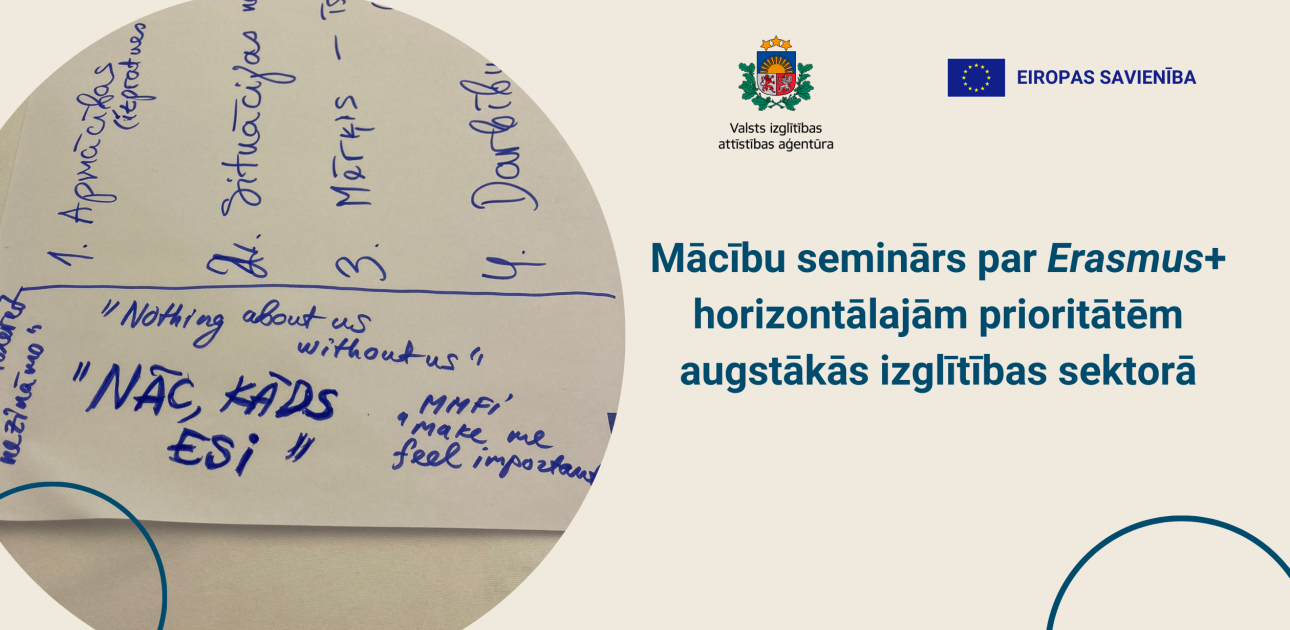 1. Apmācības
(izpratnes
2. Situācijas
3. Mērķis –
4. Darbību
nezināmo"
"Nothing about us
without us"
"NĀC, KĀDS
ESi"
MMFi
"make me
feel important
Valsts izglītības
attīstības aģentūra
EIROPAS SAVIENĪBA
Mācību seminārs par Erasmus+
horizontālajām prioritātēm
augstākās izglītības sektorā